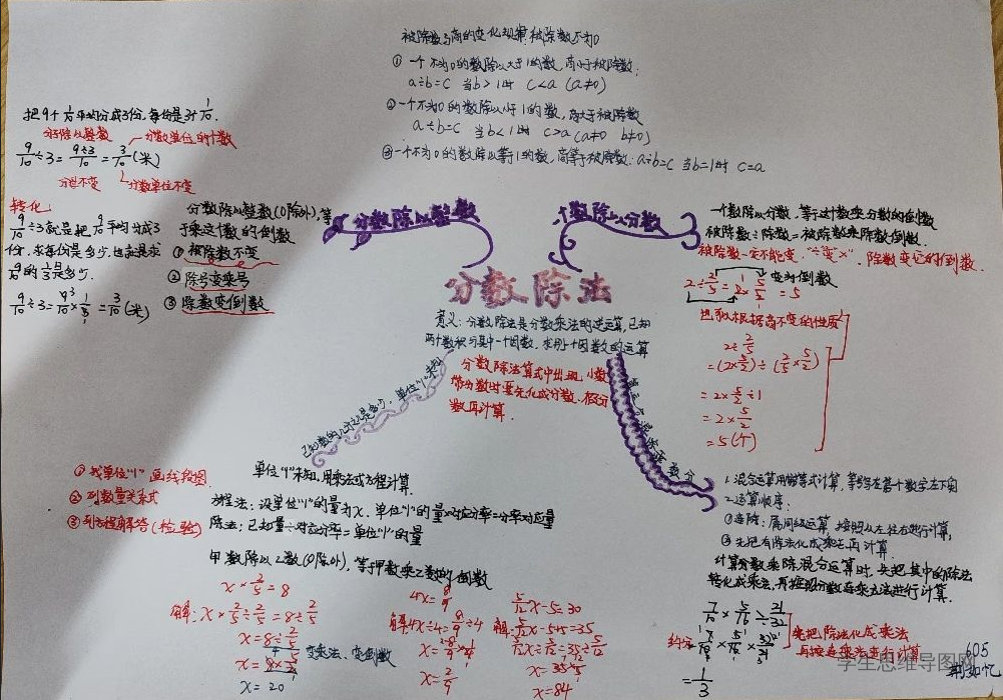 被除数与商的变化规律: 被除数不为0
① 一个不为0的数除以大于1的数, 商小于被除数.
a÷b=c 当b>1时 c<a (a≠0)
②一个不为0的数除以小于1的数, 商大于被除数
a÷b=c 当b<1时 c>a (a≠0 b≠0)
③一个不为0的数除以等于1的数, 商等于被除数: a÷b=c 当b=1时 c=a
把9个1/10平均分成3份, 每份是3个1/10.
分子除以整数
分数单位的个数
9/10÷3=9÷3/10=3/10(米)
分母不变
分数单位不变
转化:
9/10÷3就是把9/10平均分成3
份, 求每份是多少, 也就是求
9/10的1/3是多少.
9/10÷3=9/10×1/3=3/10(米)
分数除以整数
分数除以整数(0除外), 等
于乘这个数的倒数
① 被除数不变
② 除号变乘号
③ 除数变倒数
一个数除以分数
一个数除以分数, 等于这个数乘分数的倒数
被除数÷除数=被除数乘除数倒数.
被除数一定不能变, "÷"变"×", 除数变它的倒数.
变对倒数
2÷2/5=2×5/2=5
也可以根据商不变的性质
2÷2/5
=(2×5/2)÷(2/5×5/2)
=2×5/2÷1
=2×5/2
=5(个)
分数除法
意义: 分数除法是分数乘法的逆运算, 已知
两个数积与其中一个因数, 求另一个因数的运算
分数除法算式中出现, 小数
带分数时要先化成分数、假分
数再计算.
已知一个数的几分之几是多少, 单位"1"未知
① 找单位"1" 画线段图
② 列数量关系式
③ 列方程解答(检验)
单位"1"未知, 用除法或方程计算.
方程法: 设单位"1"的量为x. 单位"1"的量×对应分率=分率对应量
除法: 已知量÷对应分率=单位"1"的量
甲数除以乙数(0除外), 等于甲数乘乙数的倒数
x×2/5=8
解: x×2/5÷2/5=8÷2/5
x=8÷2/5
x=8×5/2
变乘法、变倒数
x=20
4x=8/9
解: 4x÷4=8/9÷4
x=8/9×1/4
x=2/9
1 混合运算用脱等式计算, 等号写在首个数字左下角
2 运算顺序:
①连除: 属同级运算, 按照从左往右进行计算;
②先把有除法化成乘法再计算.
计算分数乘除混合运算时, 先把其中的除法
转化成乘法, 再按照分数连乘方法进行计算.
7/10×5/16÷21/32
约分
先把除法化成乘法
再按连乘法进行计算
=1/3
605
学生思维导图网